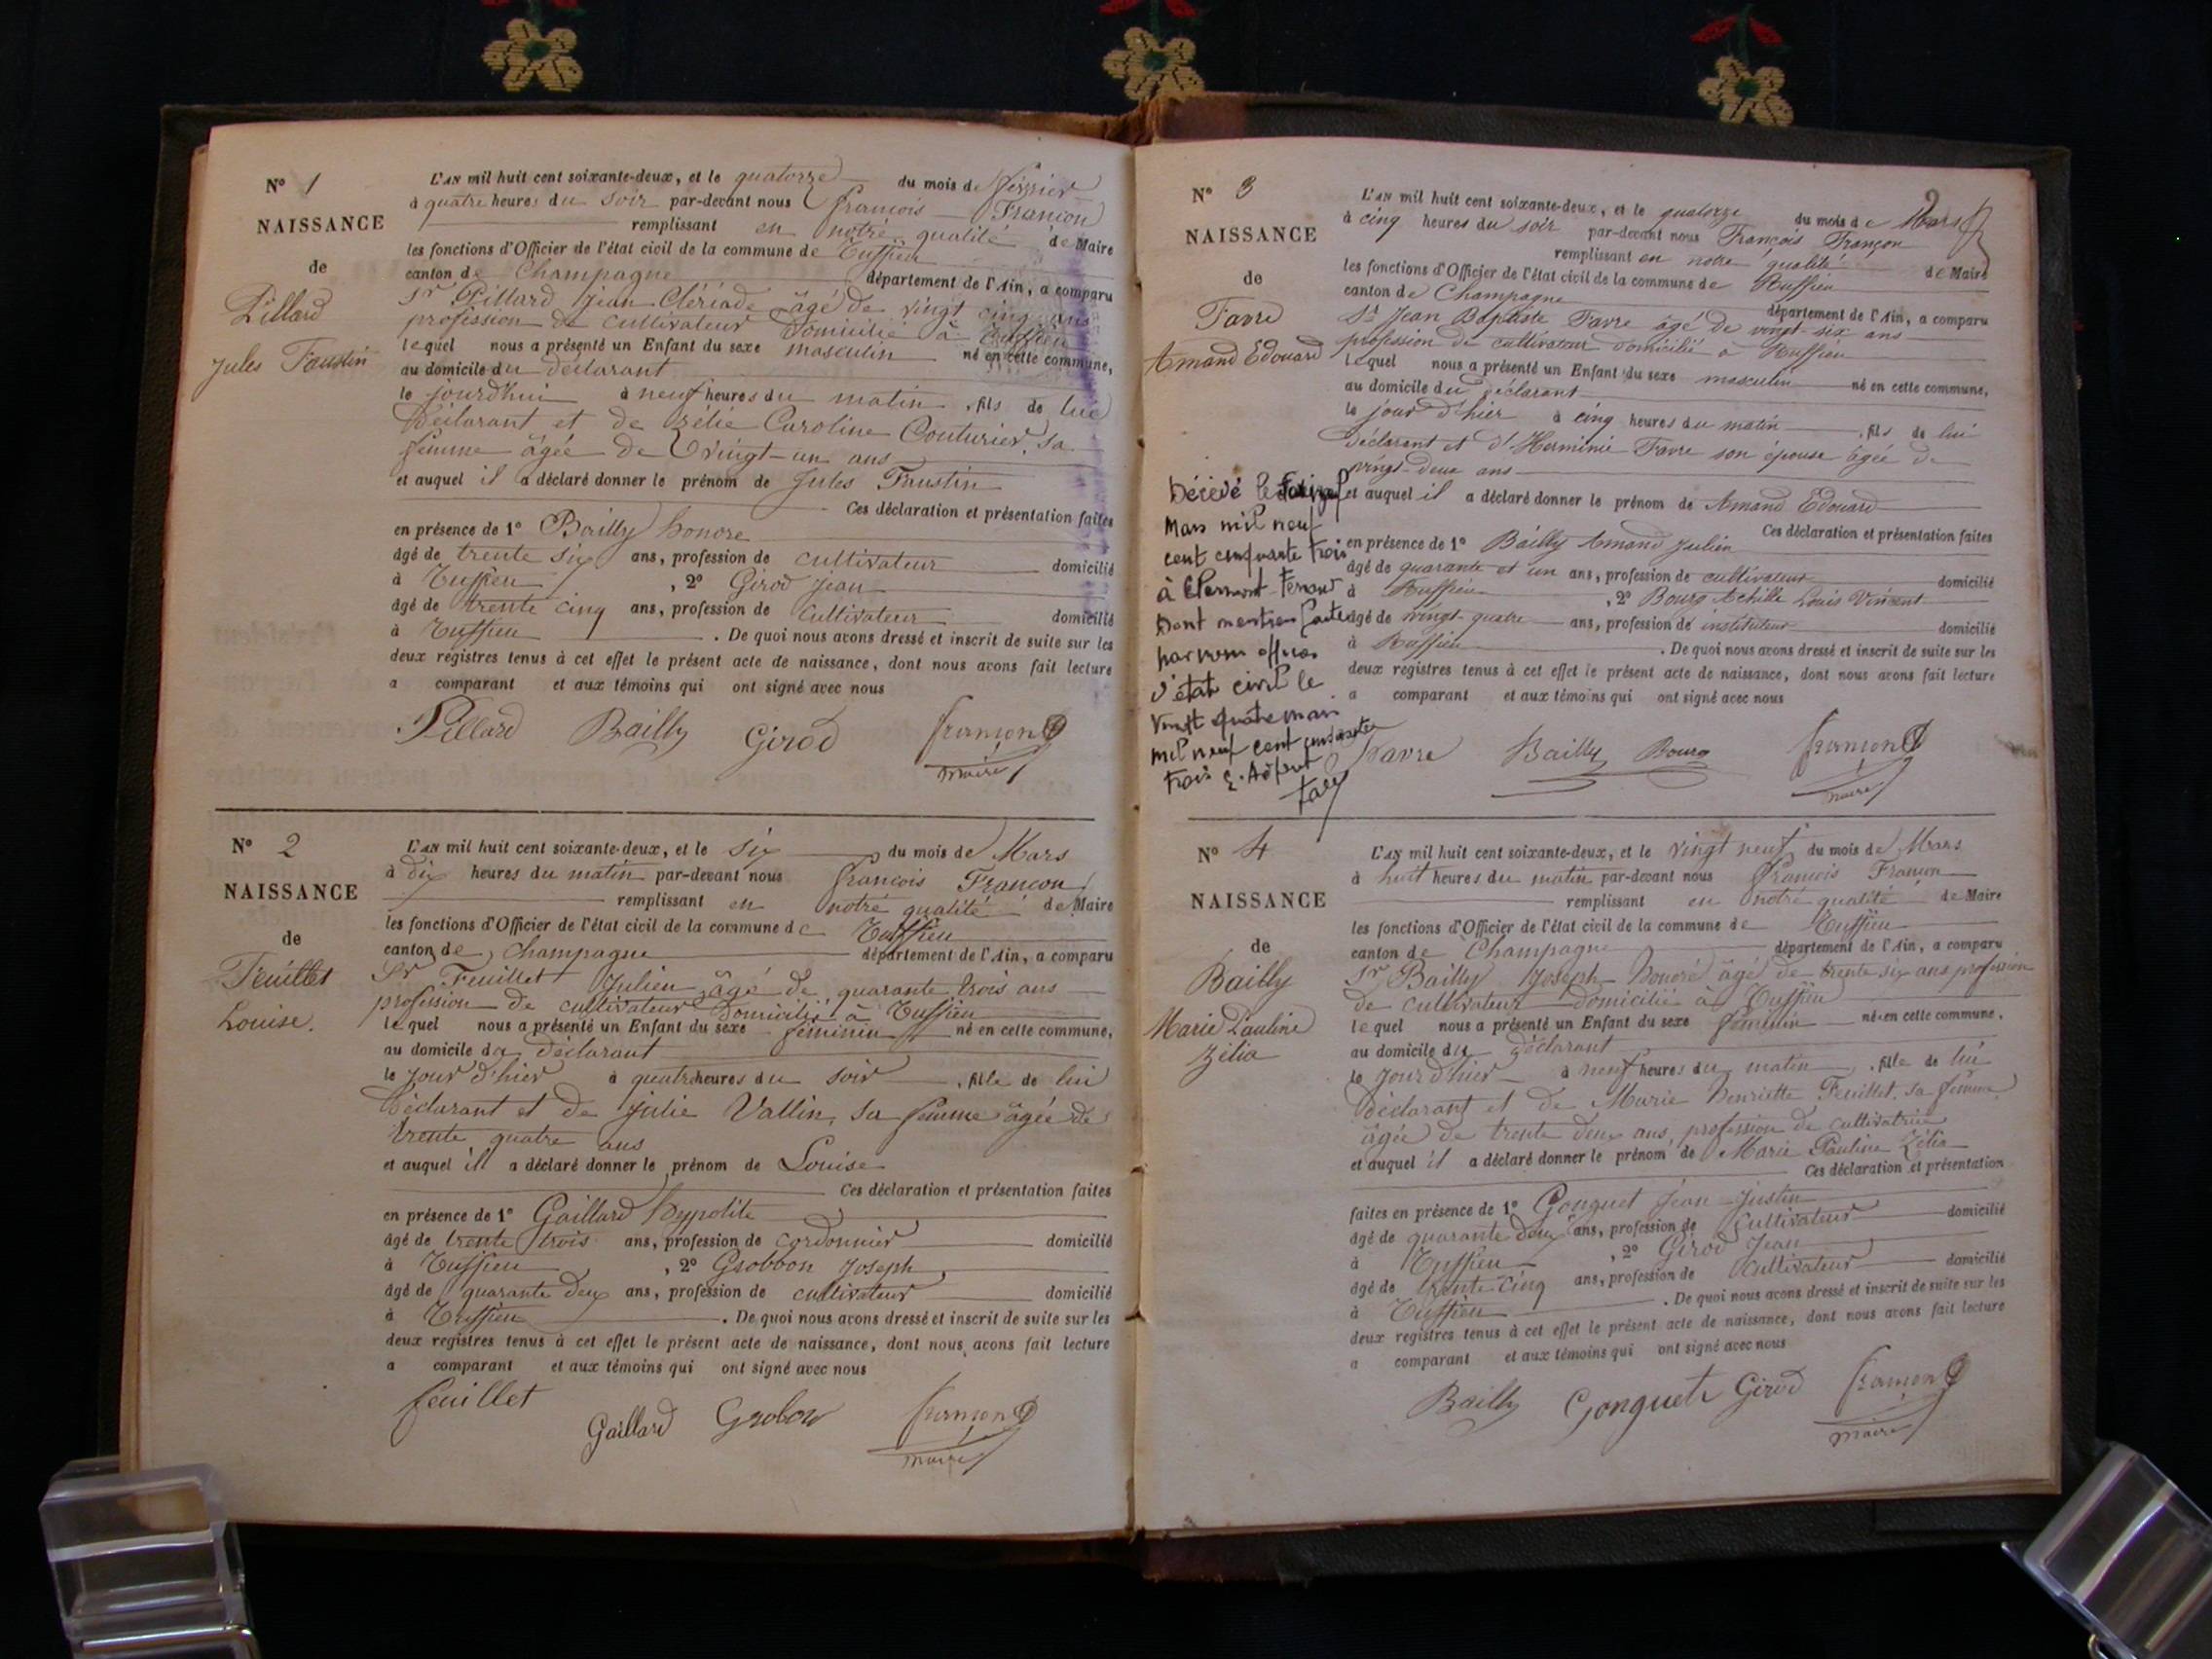 N° 1
NAISSANCE
de
Pillard
Jules Faustin
L'AN mil huit cent soixante-deux, et le quatorze du mois de février
à quatre heures du soir par-devant nous François Françon
remplissant en notre qualité de Maire
les fonctions d'Officier de l'état civil de la commune de Ruffieu
canton de Champagne département de l'Ain, a comparu
Sr Pillard Jean Clériade âgé de vingt cinq ans
profession de cultivateur domicilié à Ruffieu
lequel nous a présenté un Enfant du sexe masculin né en cette commune,
au domicile du déclarant
le jourd'hui à neuf heures du matin, fils de lui
Déclarant et de Zélie Caroline Couturier, sa
femme âgée de vingt-un ans
et auquel il a déclaré donner le prénom de Jules Faustin
Ces déclaration et présentation faites
en présence de 1° Bailly honore
âgé de trente six ans, profession de cultivateur domicilié
à Ruffieu, 2° Girod Jean
âgé de trente cinq ans, profession de cultivateur domicilié
à Ruffieu. De quoi nous avons dressé et inscrit de suite sur les
deux registres tenus à cet effet le présent acte de naissance, dont nous avons fait lecture
a comparant et aux témoins qui ont signé avec nous
Pillard Bailly Girod françon
maire
N° 2
NAISSANCE
de
Feuillet
Louise.
L'AN mil huit cent soixante-deux, et le six du mois de Mars
à dix heures du matin par-devant nous François Françon
remplissant en notre qualité de Maire
les fonctions d'Officier de l'état civil de la commune de Ruffieu
canton de Champagne département de l'Ain, a comparu
Sr Feuillet Julien âgé de quarante trois ans
profession de cultivateur domicilié à Ruffieu
lequel nous a présenté un Enfant du sexe féminin né en cette commune,
au domicile du déclarant
le jour d'hier à quatre heures du soir, fille de lui
Déclarant et de Julie Vallin, sa femme âgée de
trente quatre ans
et auquel il a déclaré donner le prénom de Louise
Ces déclaration et présentation faites
en présence de 1° Gaillard hyppolite
âgé de trente trois ans, profession de cordonnier domicilié
à Ruffieu, 2° Grobbon Joseph
âgé de quarante deux ans, profession de cultivateur domicilié
à Ruffieu. De quoi nous avons dressé et inscrit de suite sur les
deux registres tenus à cet effet le présent acte de naissance, dont nous avons fait lecture
a comparant et aux témoins qui ont signé avec nous
feuillet Gaillard Grobon françon
maire
2
N° 3
NAISSANCE
de
Favre
Amand Edouard
L'AN mil huit cent soixante-deux, et le quatorze du mois de Mars
à cinq heures du soir par-devant nous François Françon
remplissant en notre qualité de Maire
les fonctions d'Officier de l'état civil de la commune de Ruffieu
canton de Champagne département de l'Ain, a comparu
Sr Jean Baptiste Favre âgé de vingt-six ans
profession de cultivateur domicilié à Ruffieu
lequel nous a présenté un Enfant du sexe masculin né en cette commune,
au domicile du déclarant
le jour d'hier à cinq heures du matin, fils de lui
déclarant et d'Herminie Favre son épouse âgée de
vingt-deux ans
et auquel il a déclaré donner le prénom de Amand Edouard
Ces déclaration et présentation faites
en présence de 1° Bailly Amand Julien
âgé de quarante et un ans, profession de cultivateur domicilié
à Ruffieu, 2° Bourg Achille Louis Vincent
âgé de vingt-quatre ans, profession de instituteur domicilié
à Ruffieu. De quoi nous avons dressé et inscrit de suite sur les
deux registres tenus à cet effet le présent acte de naissance, dont nous avons fait lecture
a comparant et aux témoins qui ont signé avec nous
Favre Bailly Bourg françon
maire
Décédé le
Mars mil neuf
cent cinquante trois
à Clermont-Ferrand
Dont mention faite
par nous officier
d'état civil le
Vingt quatre mars
mil neuf cent cinquante
trois
N° 4
NAISSANCE
de
Bailly
Marie Pauline
Zélia
L'AN mil huit cent soixante-deux, et le vingt neuf du mois de Mars
à huit heures du matin par-devant nous François Françon
remplissant en notre qualité de Maire
les fonctions d'Officier de l'état civil de la commune de Ruffieu
canton de Champagne département de l'Ain, a comparu
Sr Bailly Joseph honoré âgé de trente six ans profession
de cultivateur domicilié à Ruffieu
lequel nous a présenté un Enfant du sexe féminin né en cette commune,
au domicile du déclarant
le jour d'hier à neuf heures du matin, fille de lui
Déclarant et de Marie henriette Feuillet, sa femme
âgée de trente deux ans, profession de cultivatrice
et auquel il a déclaré donner le prénom de Marie Pauline Zélia
Ces déclaration et présentation
faites en présence de 1° Gonguet Jean Justin
âgé de quarante deux ans, profession de cultivateur domicilié
à Ruffieu, 2° Girod Jean
âgé de trente cinq ans, profession de cultivateur domicilié
à Ruffieu. De quoi nous avons dressé et inscrit de suite sur les
deux registres tenus à cet effet le présent acte de naissance, dont nous avons fait lecture
a comparant et aux témoins qui ont signé avec nous
Bailly Gonguet Girod françon
maire